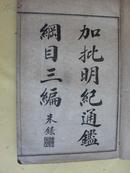 加批明紀通鑑
綱目三編